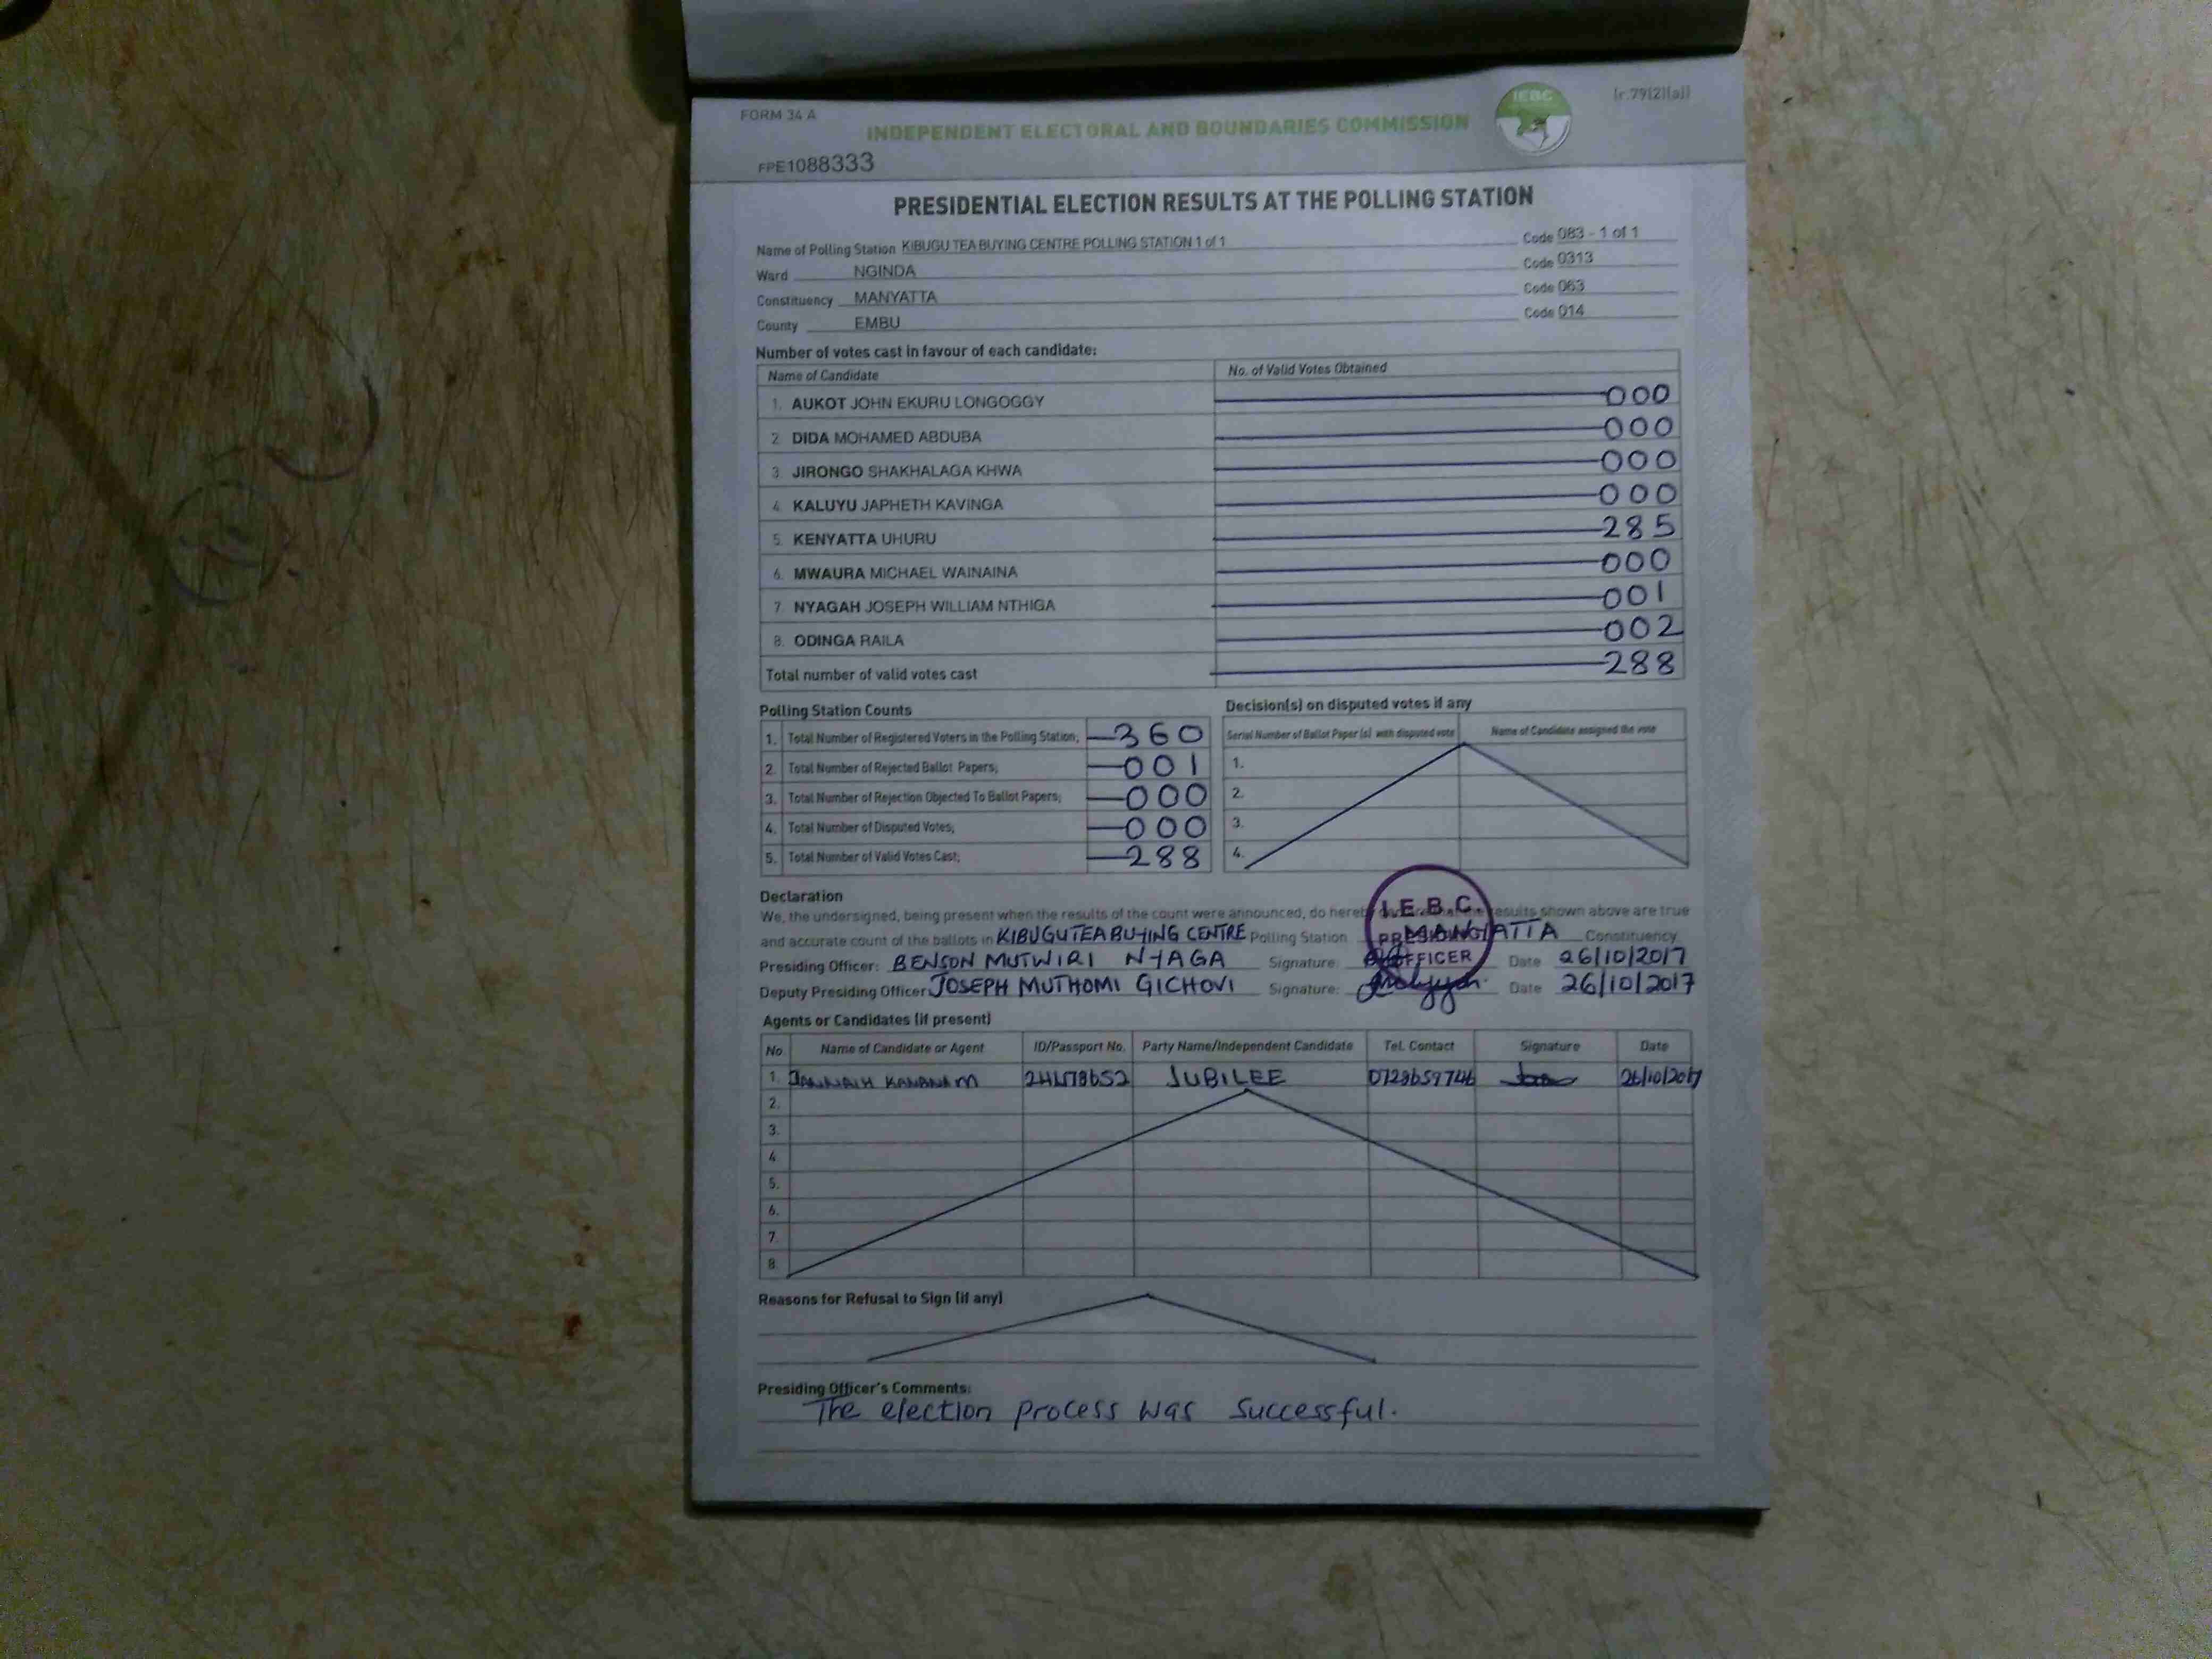 FORM 34 A
[r.79(2)(a)]
INDEPENDENT ELECTORAL AND BOUNDARIES COMMISSION
IEBC
FPE1088333
PRESIDENTIAL ELECTION RESULTS AT THE POLLING STATION
Name of Polling Station KIBUGU TEA BUYING CENTRE POLLING STATION 1 of 1 Code 083 - 1 of 1
Ward NGINDA Code 0313
Constituency MANYATTA Code 063
County EMBU Code 014
Number of votes cast in favour of each candidate:
Name of Candidate No. of Valid Votes Obtained
1. AUKOT JOHN EKURU LONGOGGY 000
2. DIDA MOHAMED ABDUBA 000
3. JIRONGO SHAKHALAGA KHWA 000
4. KALUYU JAPHETH KAVINGA 000
5. KENYATTA UHURU 285
6. MWAURA MICHAEL WAINAINA 000
7. NYAGAH JOSEPH WILLIAM NTHIGA 001
8. ODINGA RAILA 002
Total number of valid votes cast 288
Polling Station Counts
1. Total Number of Registered Voters in the Polling Station; 360
2. Total Number of Rejected Ballot Papers; 001
3. Total Number of Rejection Objected To Ballot Papers; 000
4. Total Number of Disputed Votes; 000
5. Total Number of Valid Votes Cast; 288
Decision(s) on disputed votes if any
Serial Number of Ballot Paper (s) with disputed vote Name of Candidate assigned the vote
1.
2.
3.
4.
Declaration
We, the undersigned, being present when the results of the count were announced, do hereby declare that the results shown above are true
and accurate count of the ballots in KIBUGU TEA BUYING CENTRE Polling Station MANYATTA Constituency
I.E.B.C
PRESIDING
OFFICER
Presiding Officer: BENSON MUTWIRI NYAGA Signature: Date 26/10/2017
Deputy Presiding Officer: JOSEPH MUTHOMI GICHOVI Signature: Date 26/10/2017
Agents or Candidates (if present)
No. Name of Candidate or Agent ID/Passport No. Party Name/Independent Candidate Tel. Contact Signature Date
1. JUBILEE 26/10/2017
2.
3.
4.
5.
6.
7.
8.
Reasons for Refusal to Sign (if any)
Presiding Officer's Comments:
The election process was successful.